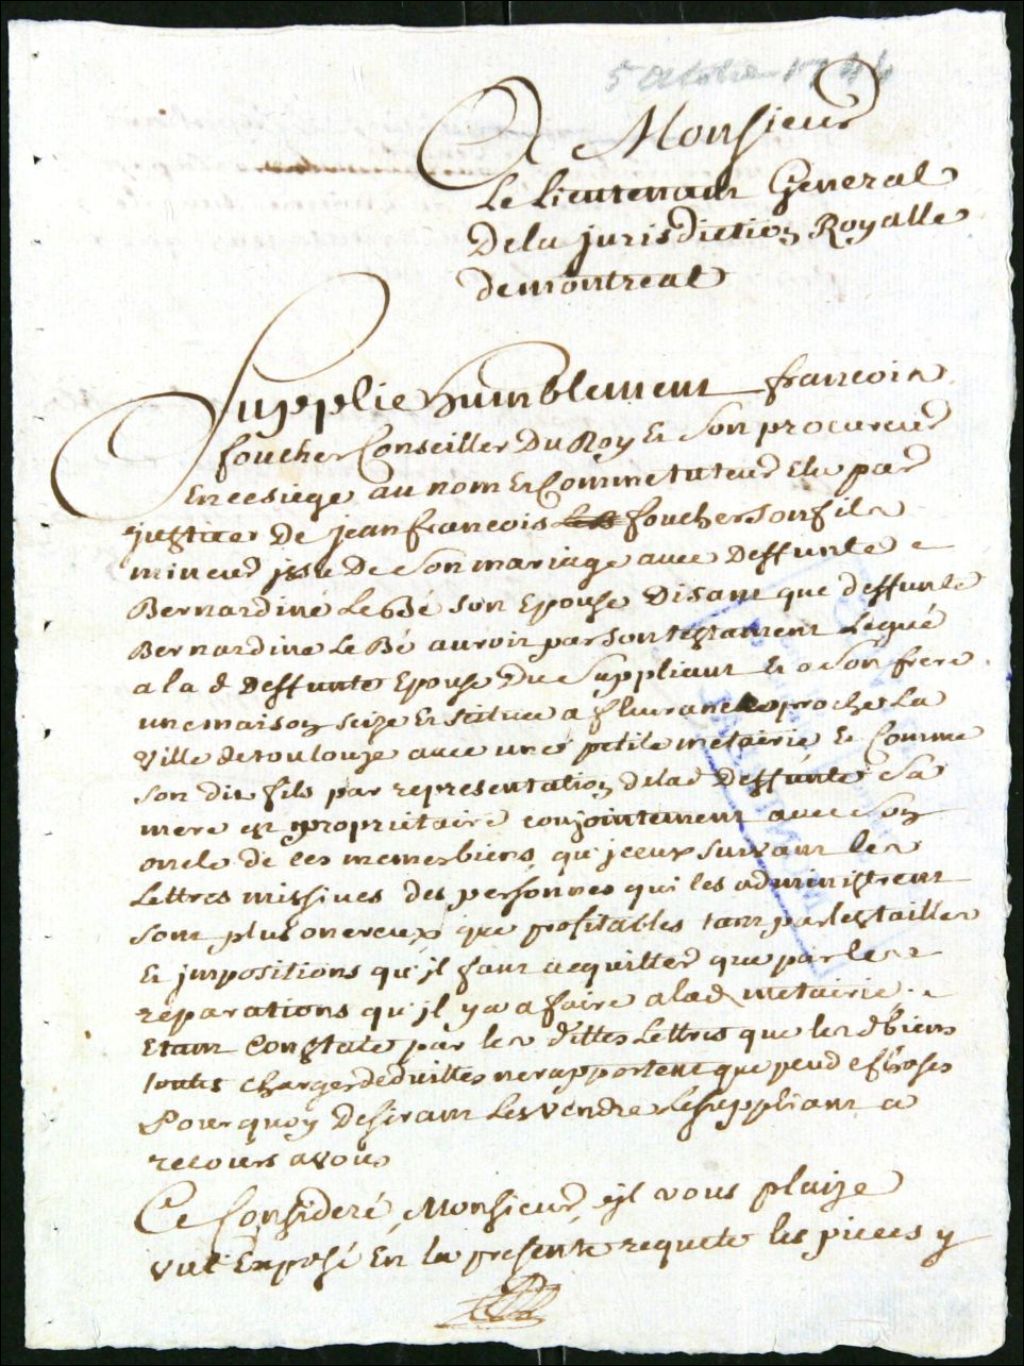 5 octobre 1744
A Monsieur
Le Lieutenant General
De la jurisdiction Royalle
de montreal
Supplie humblement francois
foucher Conseiller Du Roy Et Son procureur
En ce siege au nom Et Comme tuteur Elu par
justice De jean francois foucher son fils
mineur jssu De Son mariage avec Deffunte
Bernardine Le Bé son Epouse Disant que deffunte
Bernardine Le Bé auroit par son testament Legué
a la d Deffunte Epouse Du Suppliant Et a Son frere
une maison size Et scituee a fleurance proche La
ville de toulouze avec une petite metairie Et Comme
son dit fils par representation de lad Deffunte Sa
mere est proprietaire conjointement avec Son
oncle de ces memes biens, qu'jceux suivant les
Lettres missives des personnes qui les administrent
sont plus onereux que profitables tant par les tailles
Et jmpositions qu'jl faut acquitter que par les
reparations qu'jl y a a faire a lad metairie.
Etant Constaté par les dittes Lettres que les d biens
toutes charges deduittes ne rapportent que peu de choses
Pourquoy Desirant Les vendre Le suppliant a
recours a vous
Ce Consideré, Monsieur, jl vous plaize
vu l'Exposé En la presente requete les pieces y